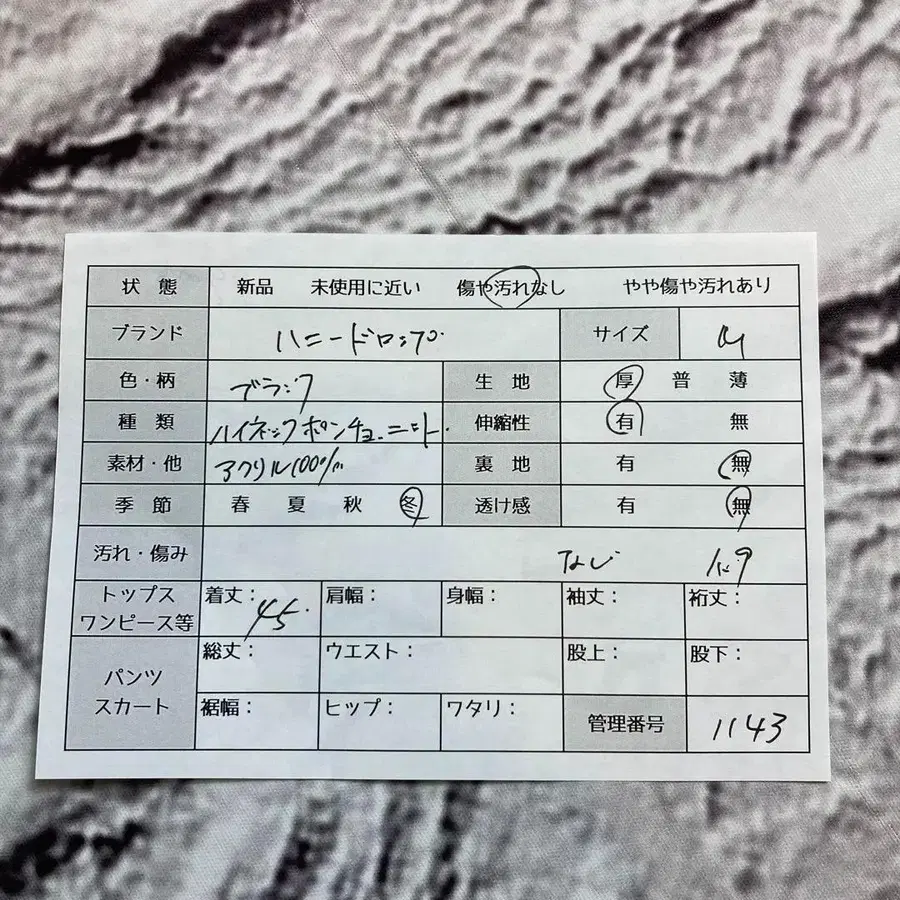 状態 新品 未使用に近い 傷や汚れなし やや傷や汚れあり
ブランド ハニードロップ サイズ M
色・柄 ブラック 生地 厚 普 薄
種類 ハイネックポンチョニット 伸縮性 有 無
素材・他 アクリル100% 裏地 有 無
季節 春 夏 秋 冬 透け感 有 無
汚れ・傷み なし
トップス ワンピース等 着丈: 45 肩幅: 身幅: 袖丈: 裄丈:
パンツ スカート 総丈: ウエスト: 股上: 股下:
裾幅: ヒップ: ワタリ: 管理番号 1143